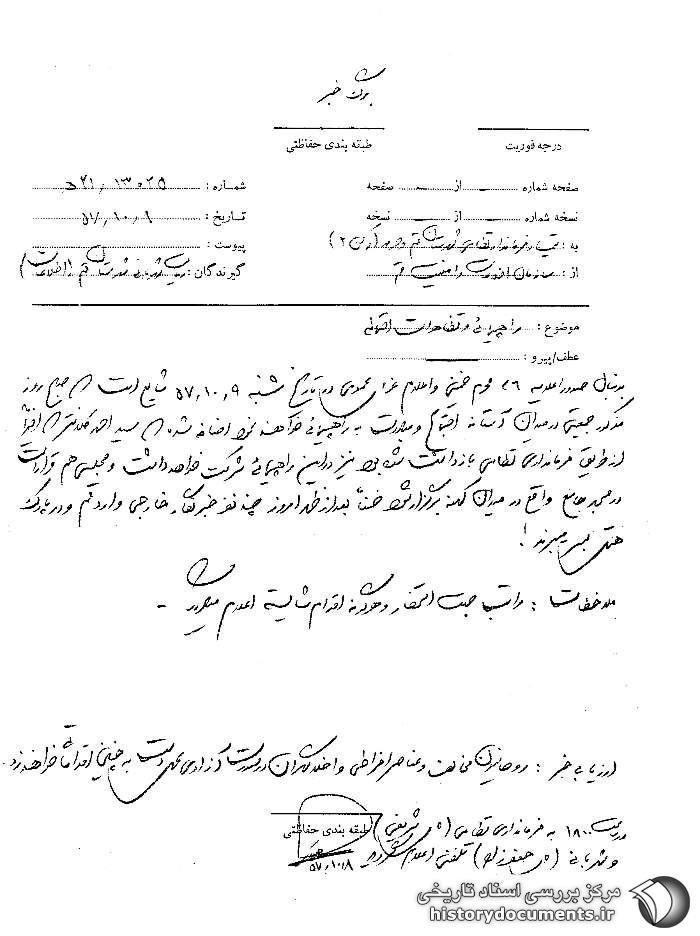 برگ خبر
درجه فوریت
طبقه بندی حفاظتی
صفحه شماره از صفحه
شماره : ۲۱/۱۳۰۲۵ د
نسخه شماره از نسخه
تاریخ : ۵۷/۱۰/۹
به : تیمسار فرماندار نظامی شهرستان قم و حومه (رکن ۲)
پیوست :
از : سازمان اطلاعات و امنیت قم
گیرندگان : ریاست شهربانی شهرستان قم (اطلاعات)
موضوع : راهپیمائی و تظاهرات احتمالی
عطف/پیرو :
بدنبال صدور اعلامیه ۲۶ محرم خمینی و اعلام عزای عمومی در تاریخ شنبه ۵۷/۱۰/۹ شایع است صبح روز
مذکور جمعیتی در میدان آستانه اجتماع و مبادرت به راهپیمائی خواهند نمود اضافه شده سید احمد کلانتر
از طریق فرمانداری نظامی بازداشت شده بود نیز در این راهپیمائی شرکت خواهد داشت و مجلسی هم قرار است
در مسجد جامع واقع در میدان کهنه برگزار شود ضمناً بعد از ظهر امروز چند نفر خبرنگار خارجی وارد قم و در پارک
هتل بسر میبرند !
ملاحظات : مراتب جهت استحضار و هرگونه اقدام شایسته اعلام میگردد -
ارزیابی خبر : روحانیون مخالف و عناصر افراطی و اخلالگران در صورت آزادی عمل دست به چنین اقداماتی خواهند زد.
ساعت ۱۸۰۰ به فرمانداری نظامی ( شریفی )
و شهربانی ( جعفرزاده ) تلفنی اعلام گردید
طبقه بندی حفاظتی
۵۷/۱۰/۸
مرکز بررسی اسناد تاریخی
historydocuments.ir